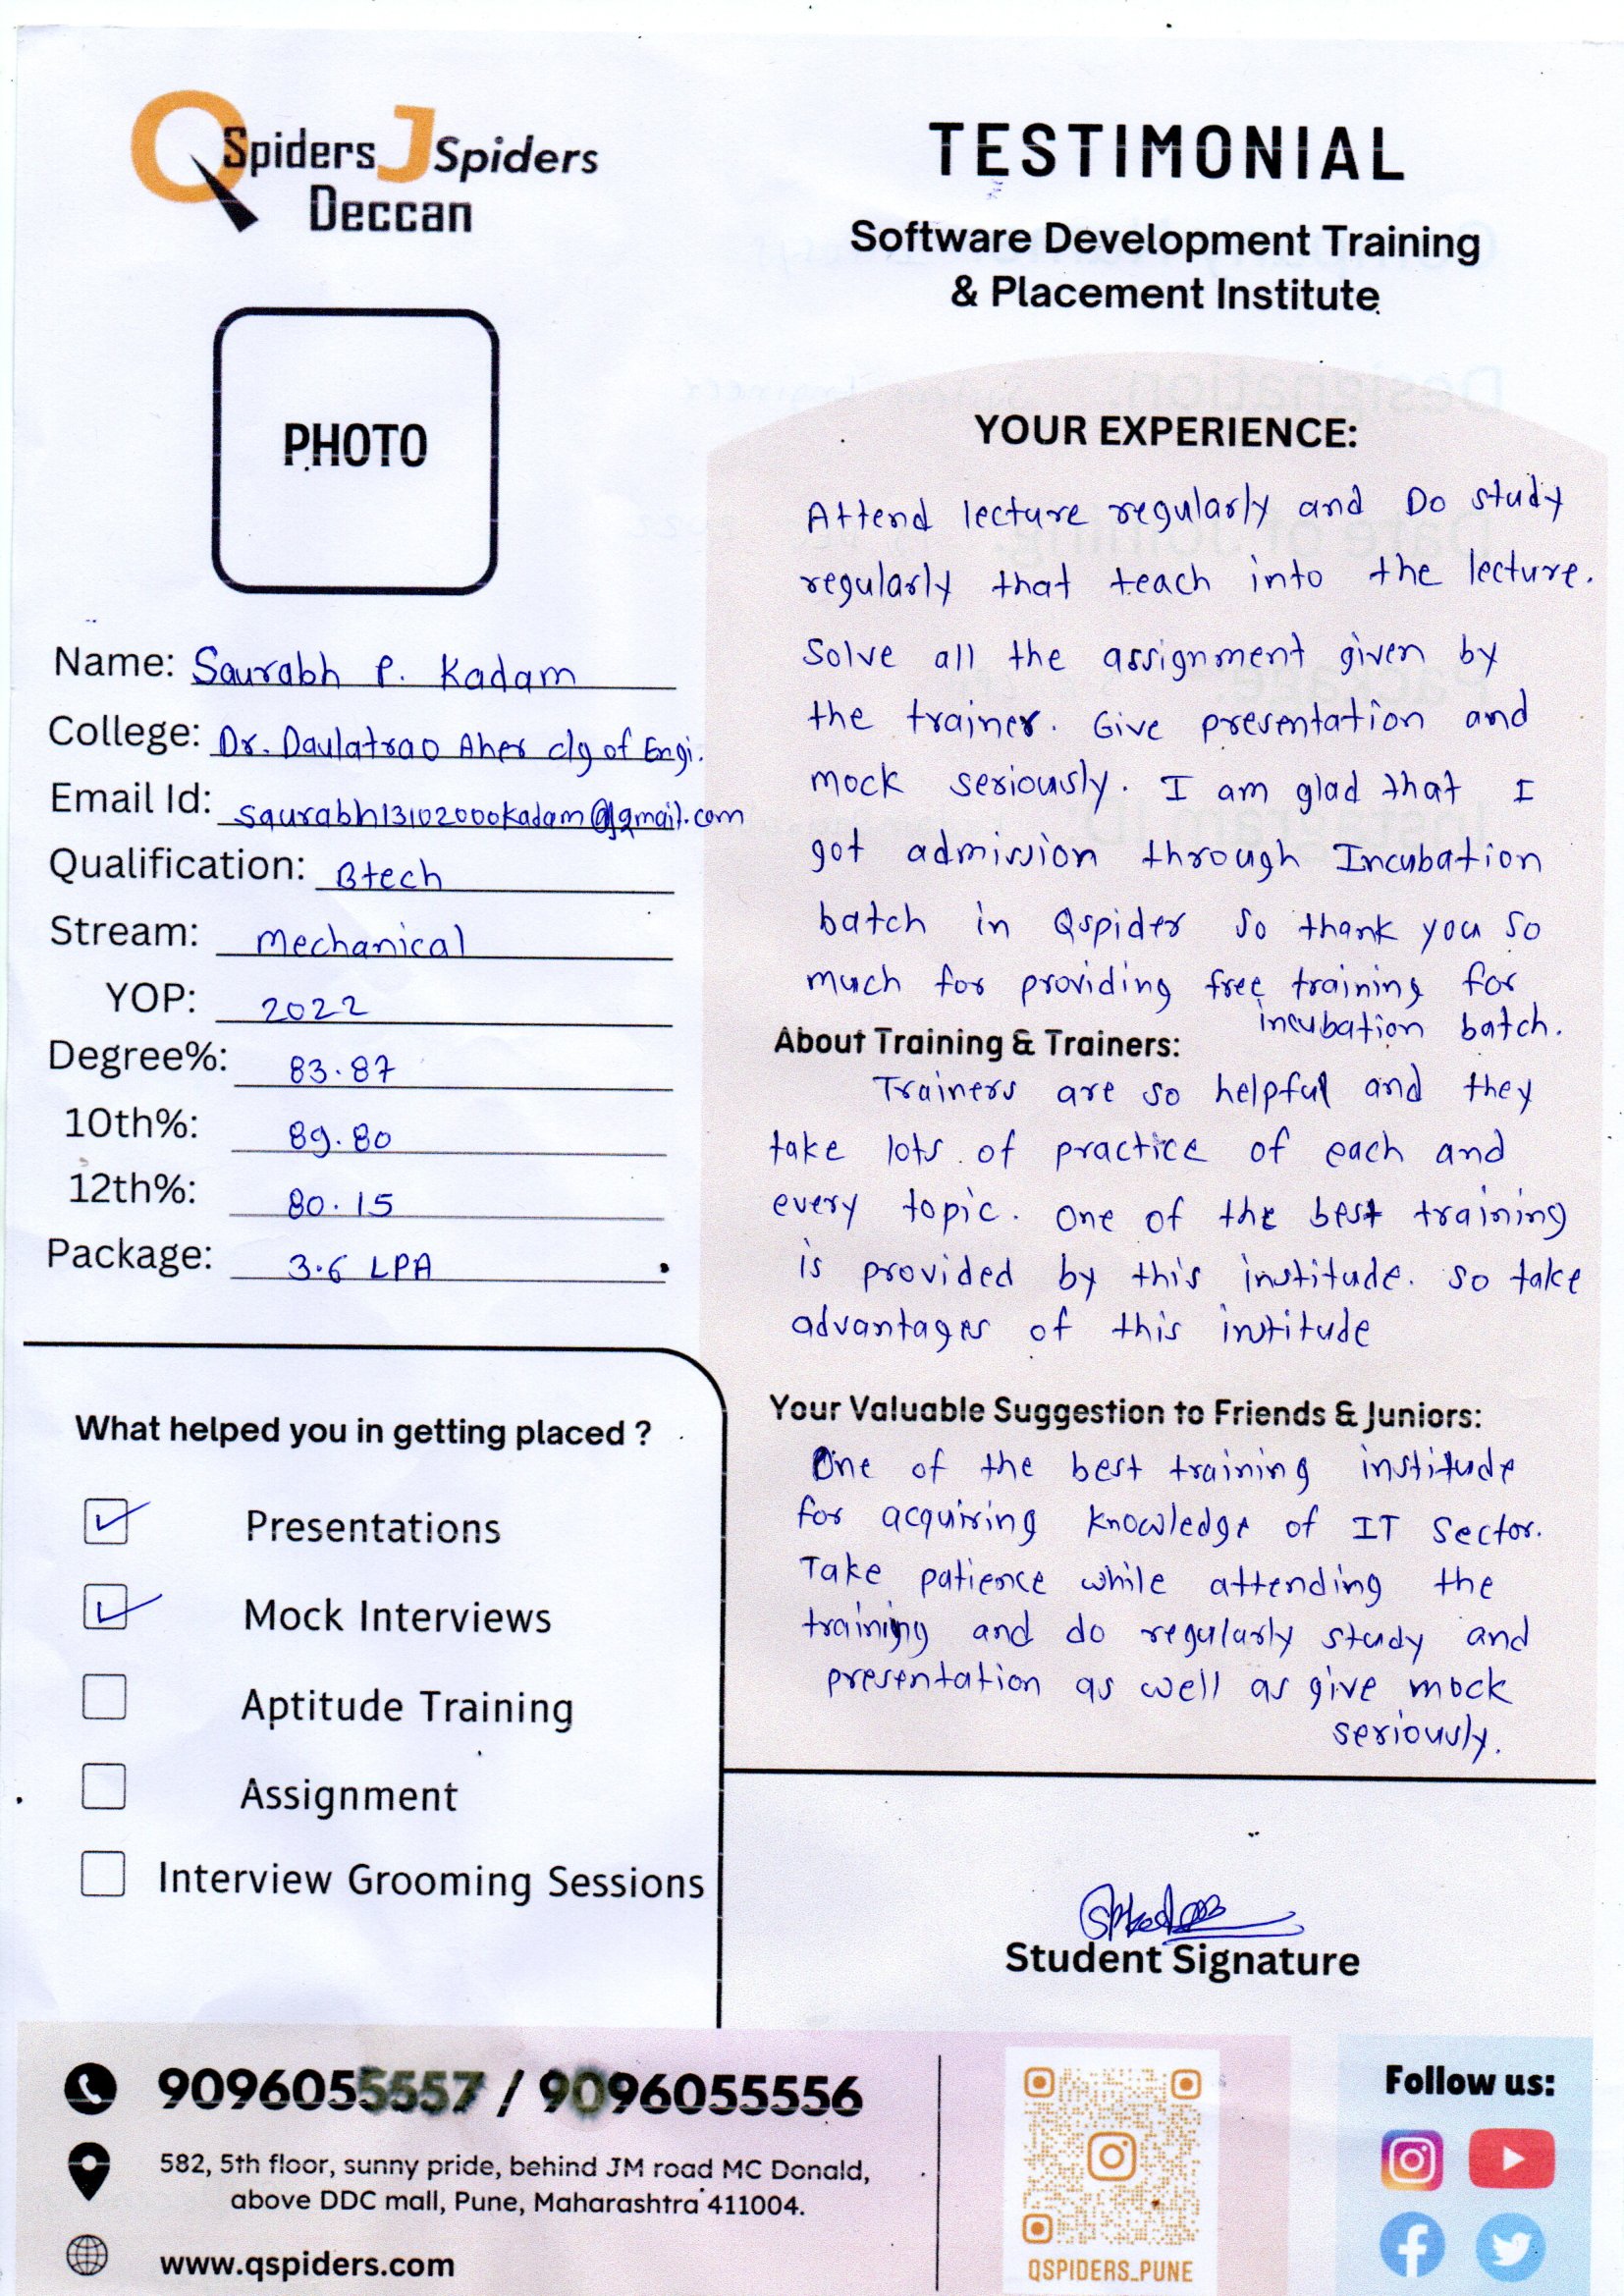 QSpiders JSpiders
Deccan
TESTIMONIAL
Software Development Training
& Placement Institute
PHOTO
Name: Saurabh P. Kadam
College: Dr. Daulatrao Aher clg of Engi.
Email Id: saurabh13102000kadam@gmail.com
Qualification: Btech
Stream: Mechanical
YOP: 2022
Degree%: 83.87
10th%: 89.80
12th%: 80.15
Package: 3.6 LPA
What helped you in getting placed ?
Presentations
Mock Interviews
Aptitude Training
Assignment
Interview Grooming Sessions
YOUR EXPERIENCE:
Attend lecture regularly and Do study
regularly that teach into the lecture.
Solve all the assignment given by
the trainer. Give presentation and
mock seriously. I am glad that I
got admission through Incubation
batch in Qspider So thank you so
much for providing free training for
incubation batch.
About Training & Trainers:
Trainers are so helpful and they
take lots of practice of each and
every topic. One of the best training
is provided by this institude. so take
advantages of this institude
Your Valuable Suggestion to Friends & Juniors:
One of the best training institude
for acquiring knowledge of IT Sector.
Take patience while attending the
training and do regularly study and
presentation as well as give mock
seriously.
Student Signature
9096055557 / 9096055556
582, 5th floor, sunny pride, behind JM road MC Donald,
above DDC mall, Pune, Maharashtra 411004.
www.qspiders.com
QSPIDERS_PUNE
Follow us: